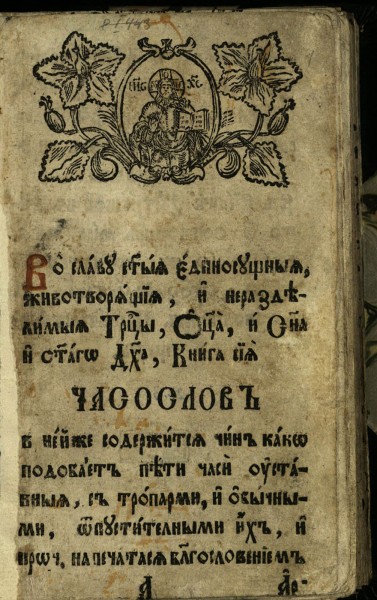 8I443
ІИ҃С ХС҃
Во сла́вꙋ ст҃ы́ѧ є҆диносꙋ́щныѧ,
животворѧ́щїѧ, и҆ нераздѣ-
ли́мыѧ Трⷪ҇цы, Ѻ҆ц҃а̀, и҆ Сн҃а
и҆ ст҃а́гѡ Дх҃а, Кни́га сїѧ̀
ЧАСОСЛОВЪ
в не́йже содержи́тсѧ чи́нъ ка́кѡ
подоба́етъ пѣ́ти часы̀ ᲂу҆ста́-
вныѧ, съ тропармѝ, и҆ ѻ҆бы́чны-
ми, ѿпꙋсти́телными и҆́хъ, и҆
проч, напеча́тасѧ бл҃гослове́нїемъ
А А҆р-